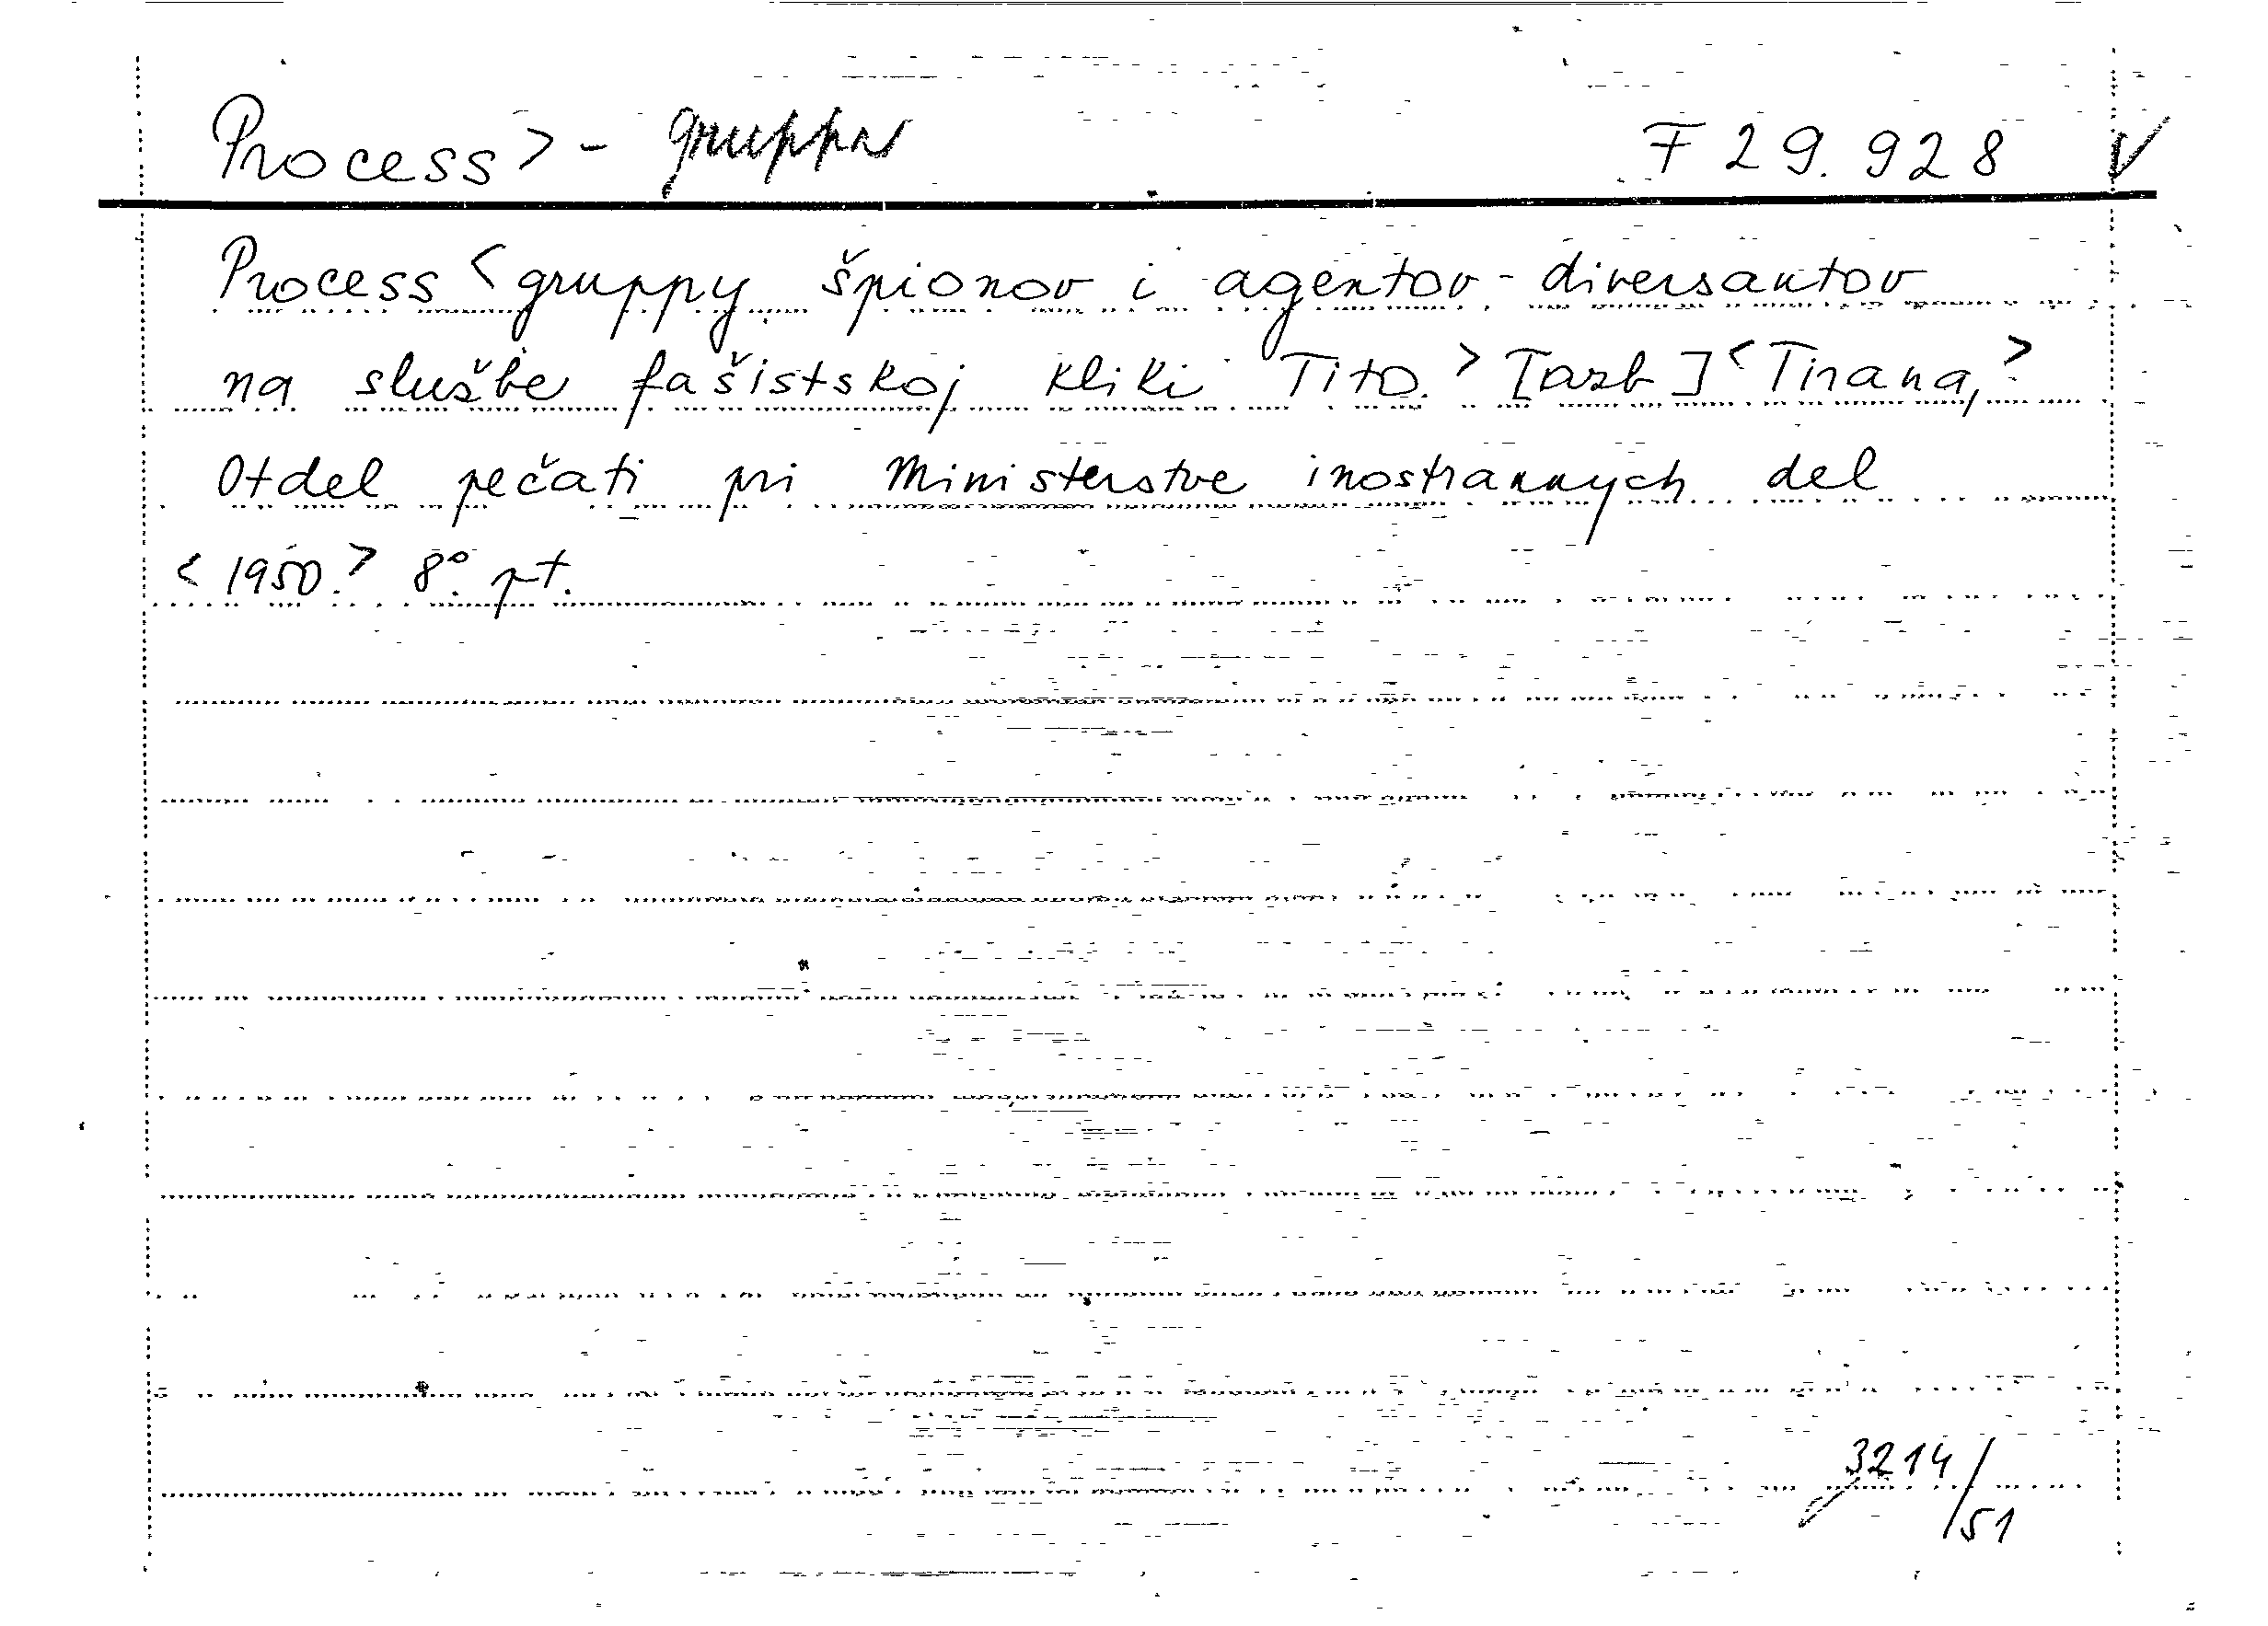 Process > - gruppa F 29.928 V
Process < gruppy špionov i agentov-diversantov
na službe fašistskoj kliki Tito. > [azb] < Tirana, >
Otdel pečati pri Ministerstve inostrannych del
< 1950. > 8°. pt.
3214/
51